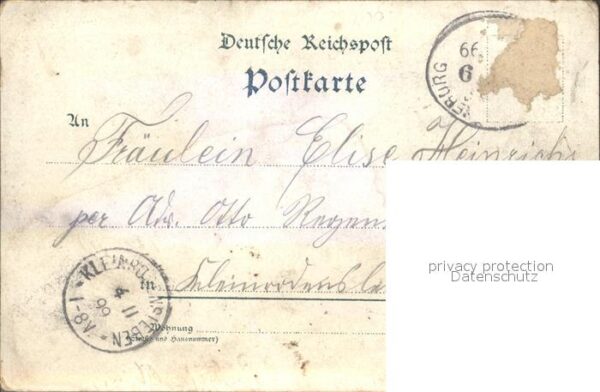 Deutsche Reichspost
Postkarte
BURG
99
6
An
Fräulein Elise Heinrichs
per Adr. Otto Regens
in
Kleinrodensle
KLEINRO NSLEBEN
4 11
99
8-1V
Wohnung
(Straße und Hausnummer)
privacy protection
Datenschutz